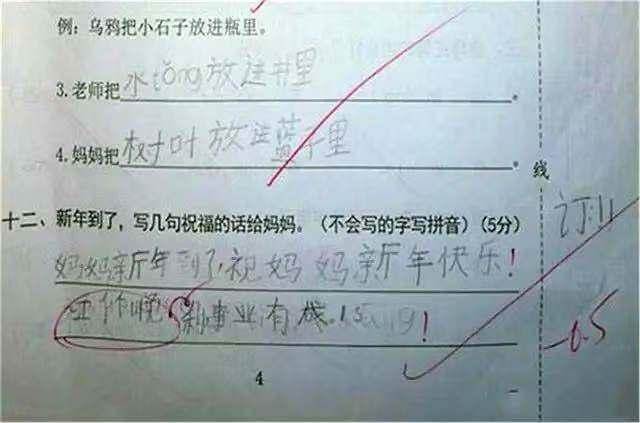 例：乌鸦把小石子放进瓶里。
3.老师把水tǒng放进书里。
4.妈妈把树叶放进蓝子里。
线
订:11
十二、新年到了，写几句祝福的话给妈妈。（不会写的字写拼音）(5分)
妈妈新年到了，祝妈妈新年快乐！
工作 事业有
-0.5
4